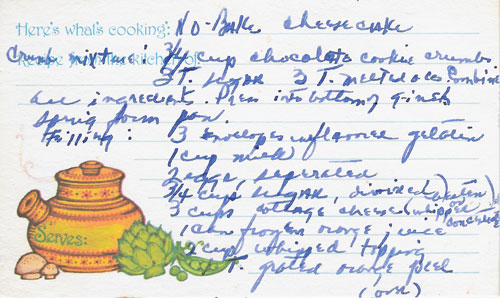 Here's what's cooking: No-Bake cheesecake
Crumb mixture: 3/4 cup chocolate cookie crumbs
3 T. sugar 3 T. melted oleo. Combine
all ingredients. Press into bottom of 9-inch
spring form pan.
Filling: 3 envelopes unflavored gelatin
1 cup milk
2 eggs, seperated
3/4 cup sugar, divided
3 cups cottage cheese (whipped
1 can frozen orange juice
2 cup whipped topping
T. grated orange peel
Serves:
(over)